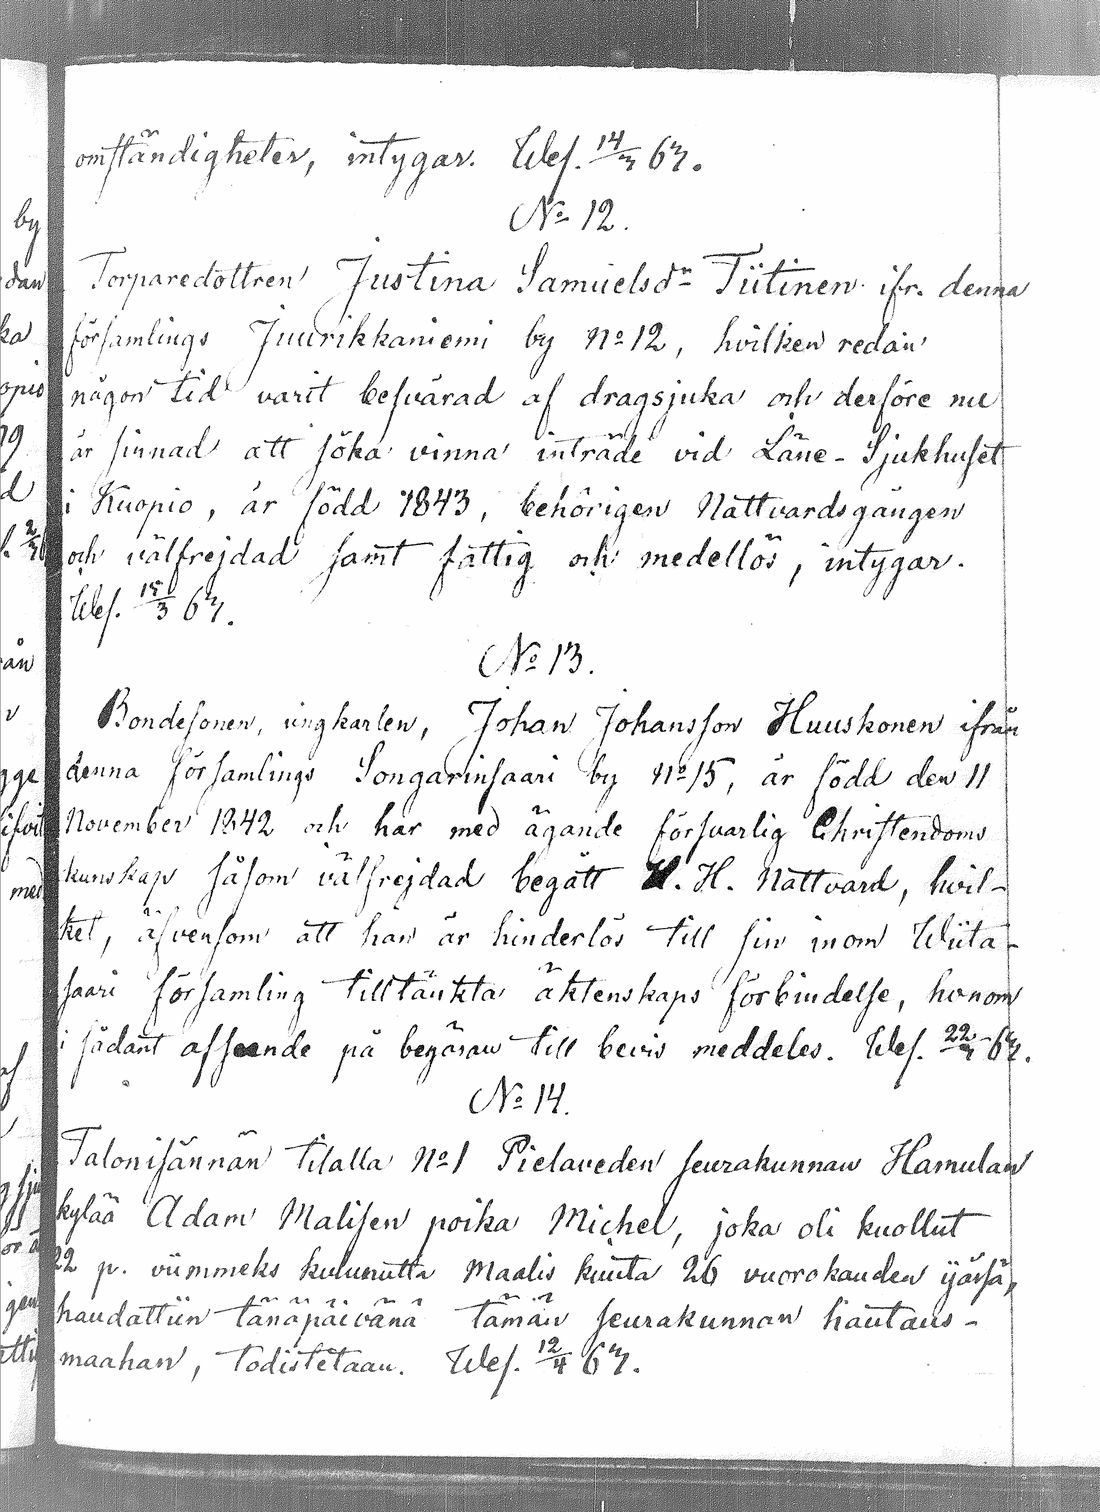 omständigheter, intygar. Wes. 14/3 67.
No 12.
Torparedottren Justina Samuelsdr Tiitinen ifr. denna
församlings Juurikkaniemi by No 12, hvilken redan
någon tid varit besvärad af dragsjuka och derföre nu
är sinnad att söka vinna inträde vid Läne-Sjukhuset
i Kuopio, är född 1843, behörigen Nattvardsgången
och välfrejdad samt fattig och medellös, intygar.
Wes. 15/3 67.
No 13.
Bondesonen, ungkarlen, Johan Johansson Huuskonen ifrån
denna församlings Songarinsaari by No 15, är född den 11
November 1842 och har med ägande försvarlig Christendoms
kunskap såsom välfrejdad begått H. H. Nattvard, hvil-
ket, äfvensom att han är hinderlös till sin inom Wiita-
saari församling tilltänkta äktenskaps förbindelse, honom
i sådant afseende på begäran till bevis meddeles. Wes. 22/3 67.
No 14.
Talonisännän tilalla No 1 Pielaveden seurakunnan Hamulan
kylää Adam Malisen poika Michel, joka oli kuollut
22 p. viimmeks kulunutta Maalis kuuta 26 vuorokauden ijässä,
haudattiin tänäpäivänä tämän seurakunnan hautaus-
maahan, todistetaan. Wes. 12/4 67.
by
dan
ka
opio
d
ån
v
gge
med
af
gen